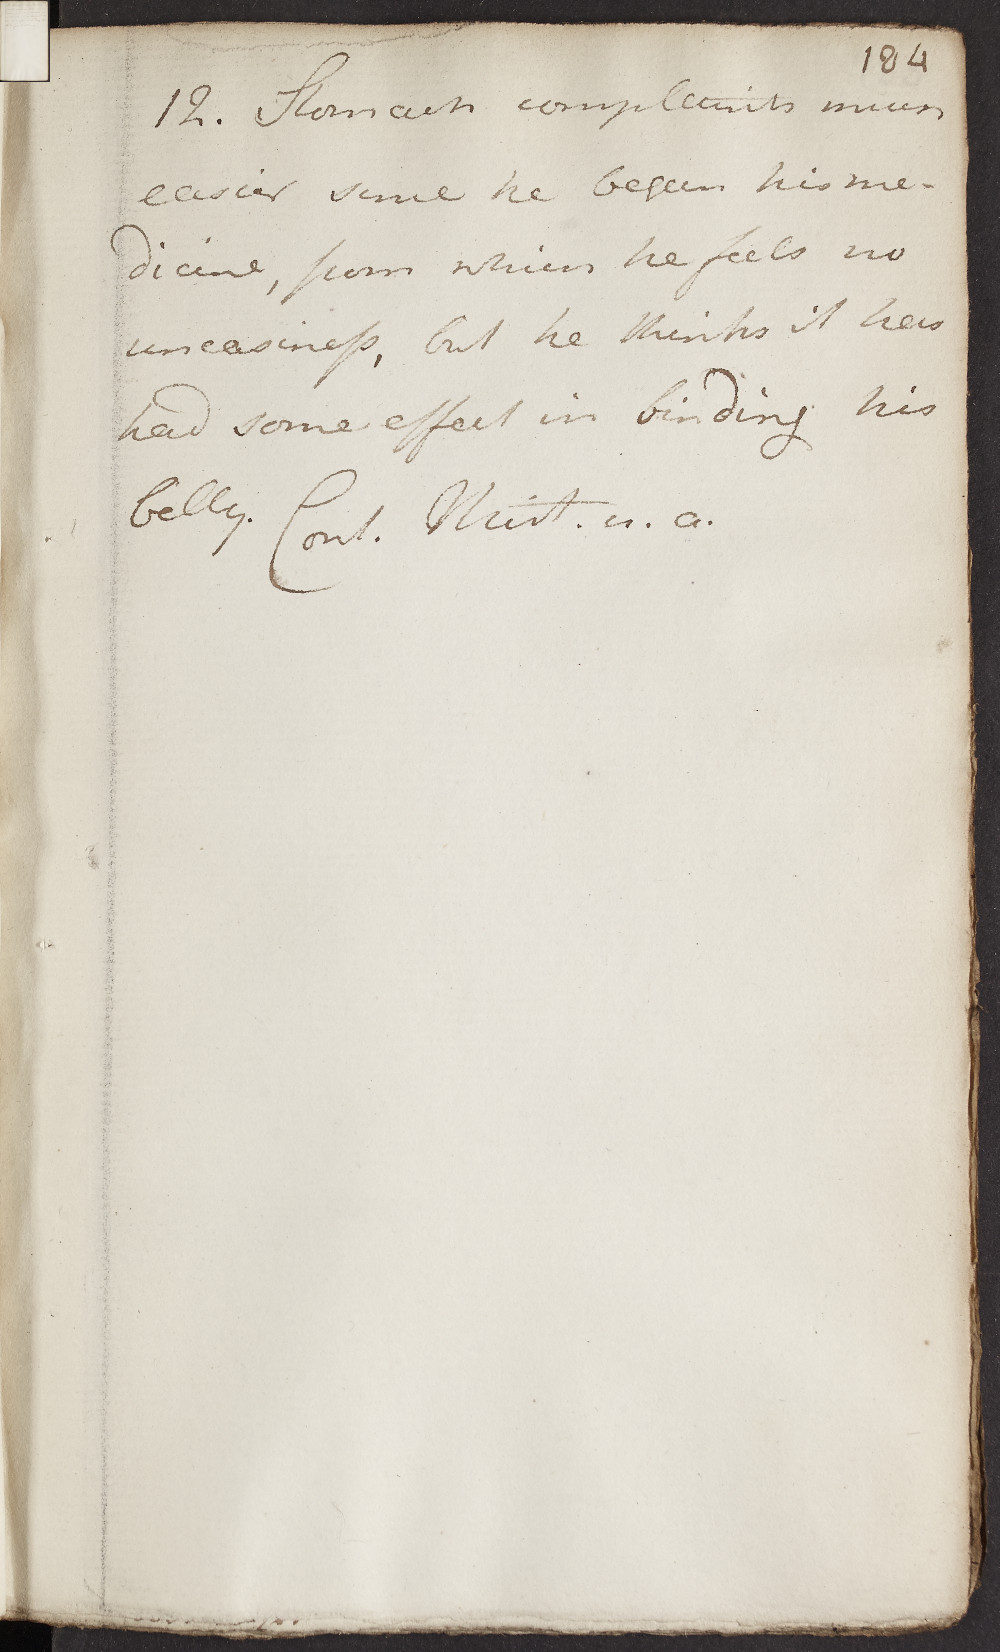 184
12. Stomach complaints much
easier since he began his me-
dicine, from which he feels no
uneasiness, but he thinks it has
had some effect in binding his
belly. Cont. Mist. u. a.